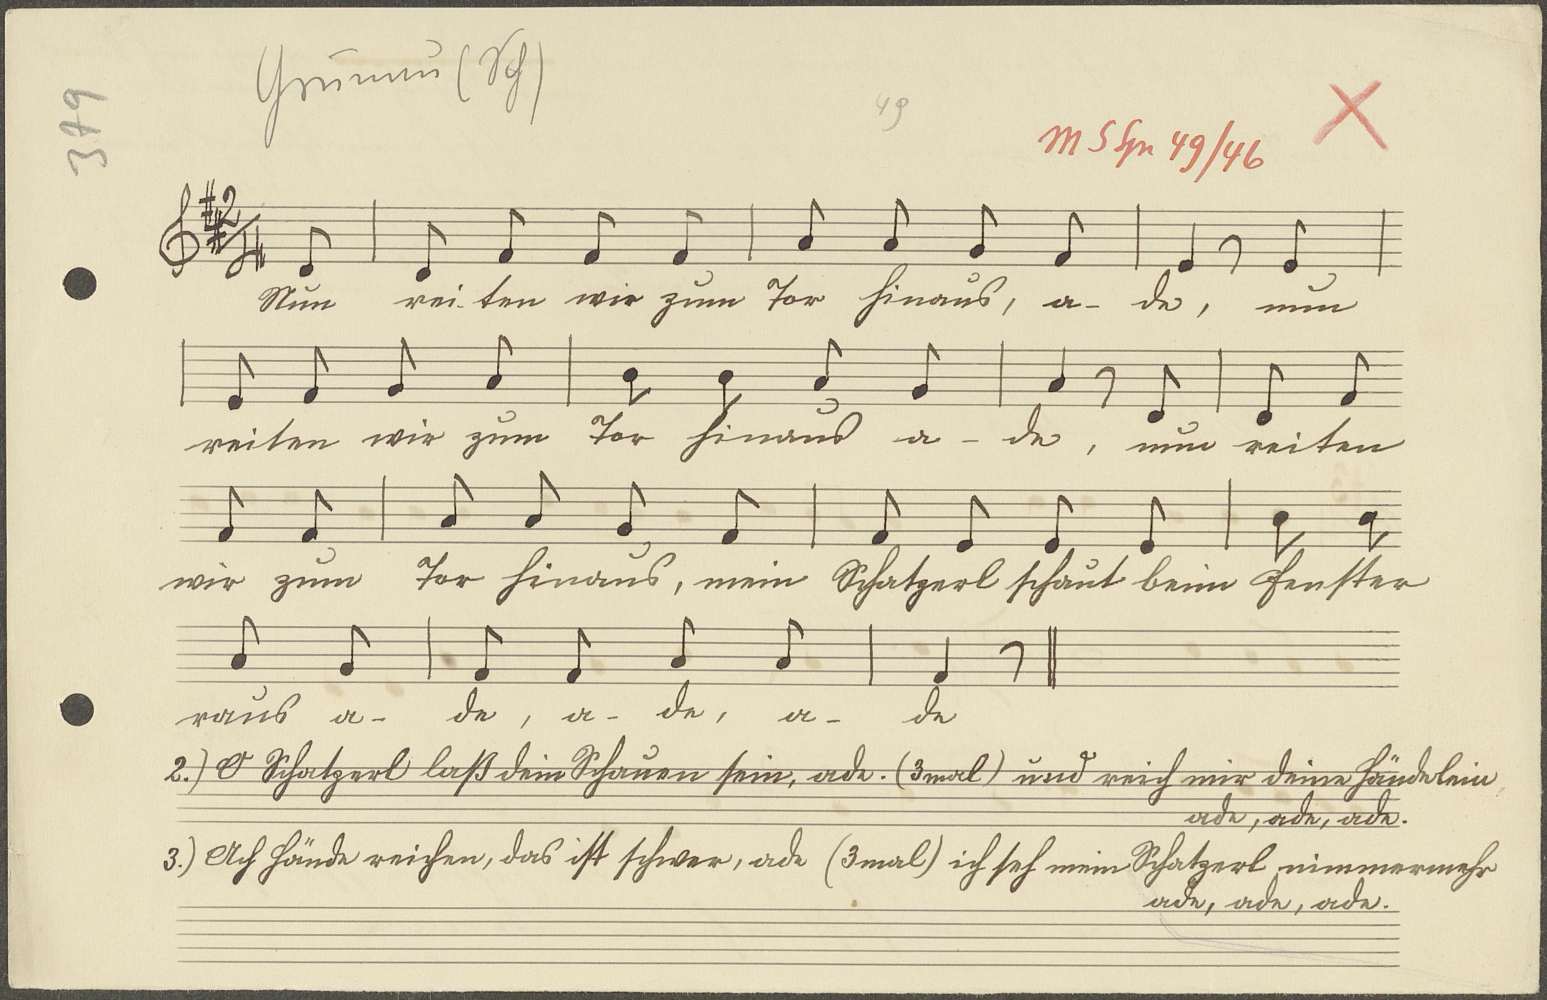 379
(Sch)
49
49/46
2/4
Nun rei-ten wir zum Tor hinaus, a- de, nun
reiten wir zum Tor hinaus a - de, nun reiten
wir zum Tor hinaus, mein Schatzerl schaut beim Fenster
raus a- de, a- de, a- de
2.) O Schatzerl laß dein Schauen sein, ade. (3mal) und reich mir deine Händelein
ade, ade, ade.
3.) Ach Hände reichen, das ist schwer, ade (3mal) ich seh mein Schatzerl nimmermehr
ade, ade, ade.